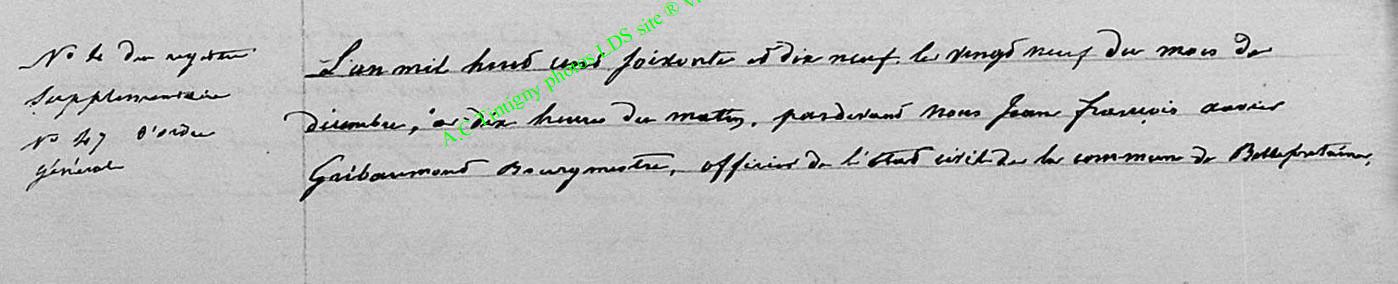 No 4 du registre
Supplémentaire
No 47 d'ordre
général
L'an mil huit cent soixante et dix neuf le vingt neuf du mois de
décembre, à dix heures du matin, pardevant nous Jean françois xavier
Gribaumont Bourgmestre, officier de l'état civil de la commune de Bellefontaine,
A.C. Tintigny photos LDS site ®